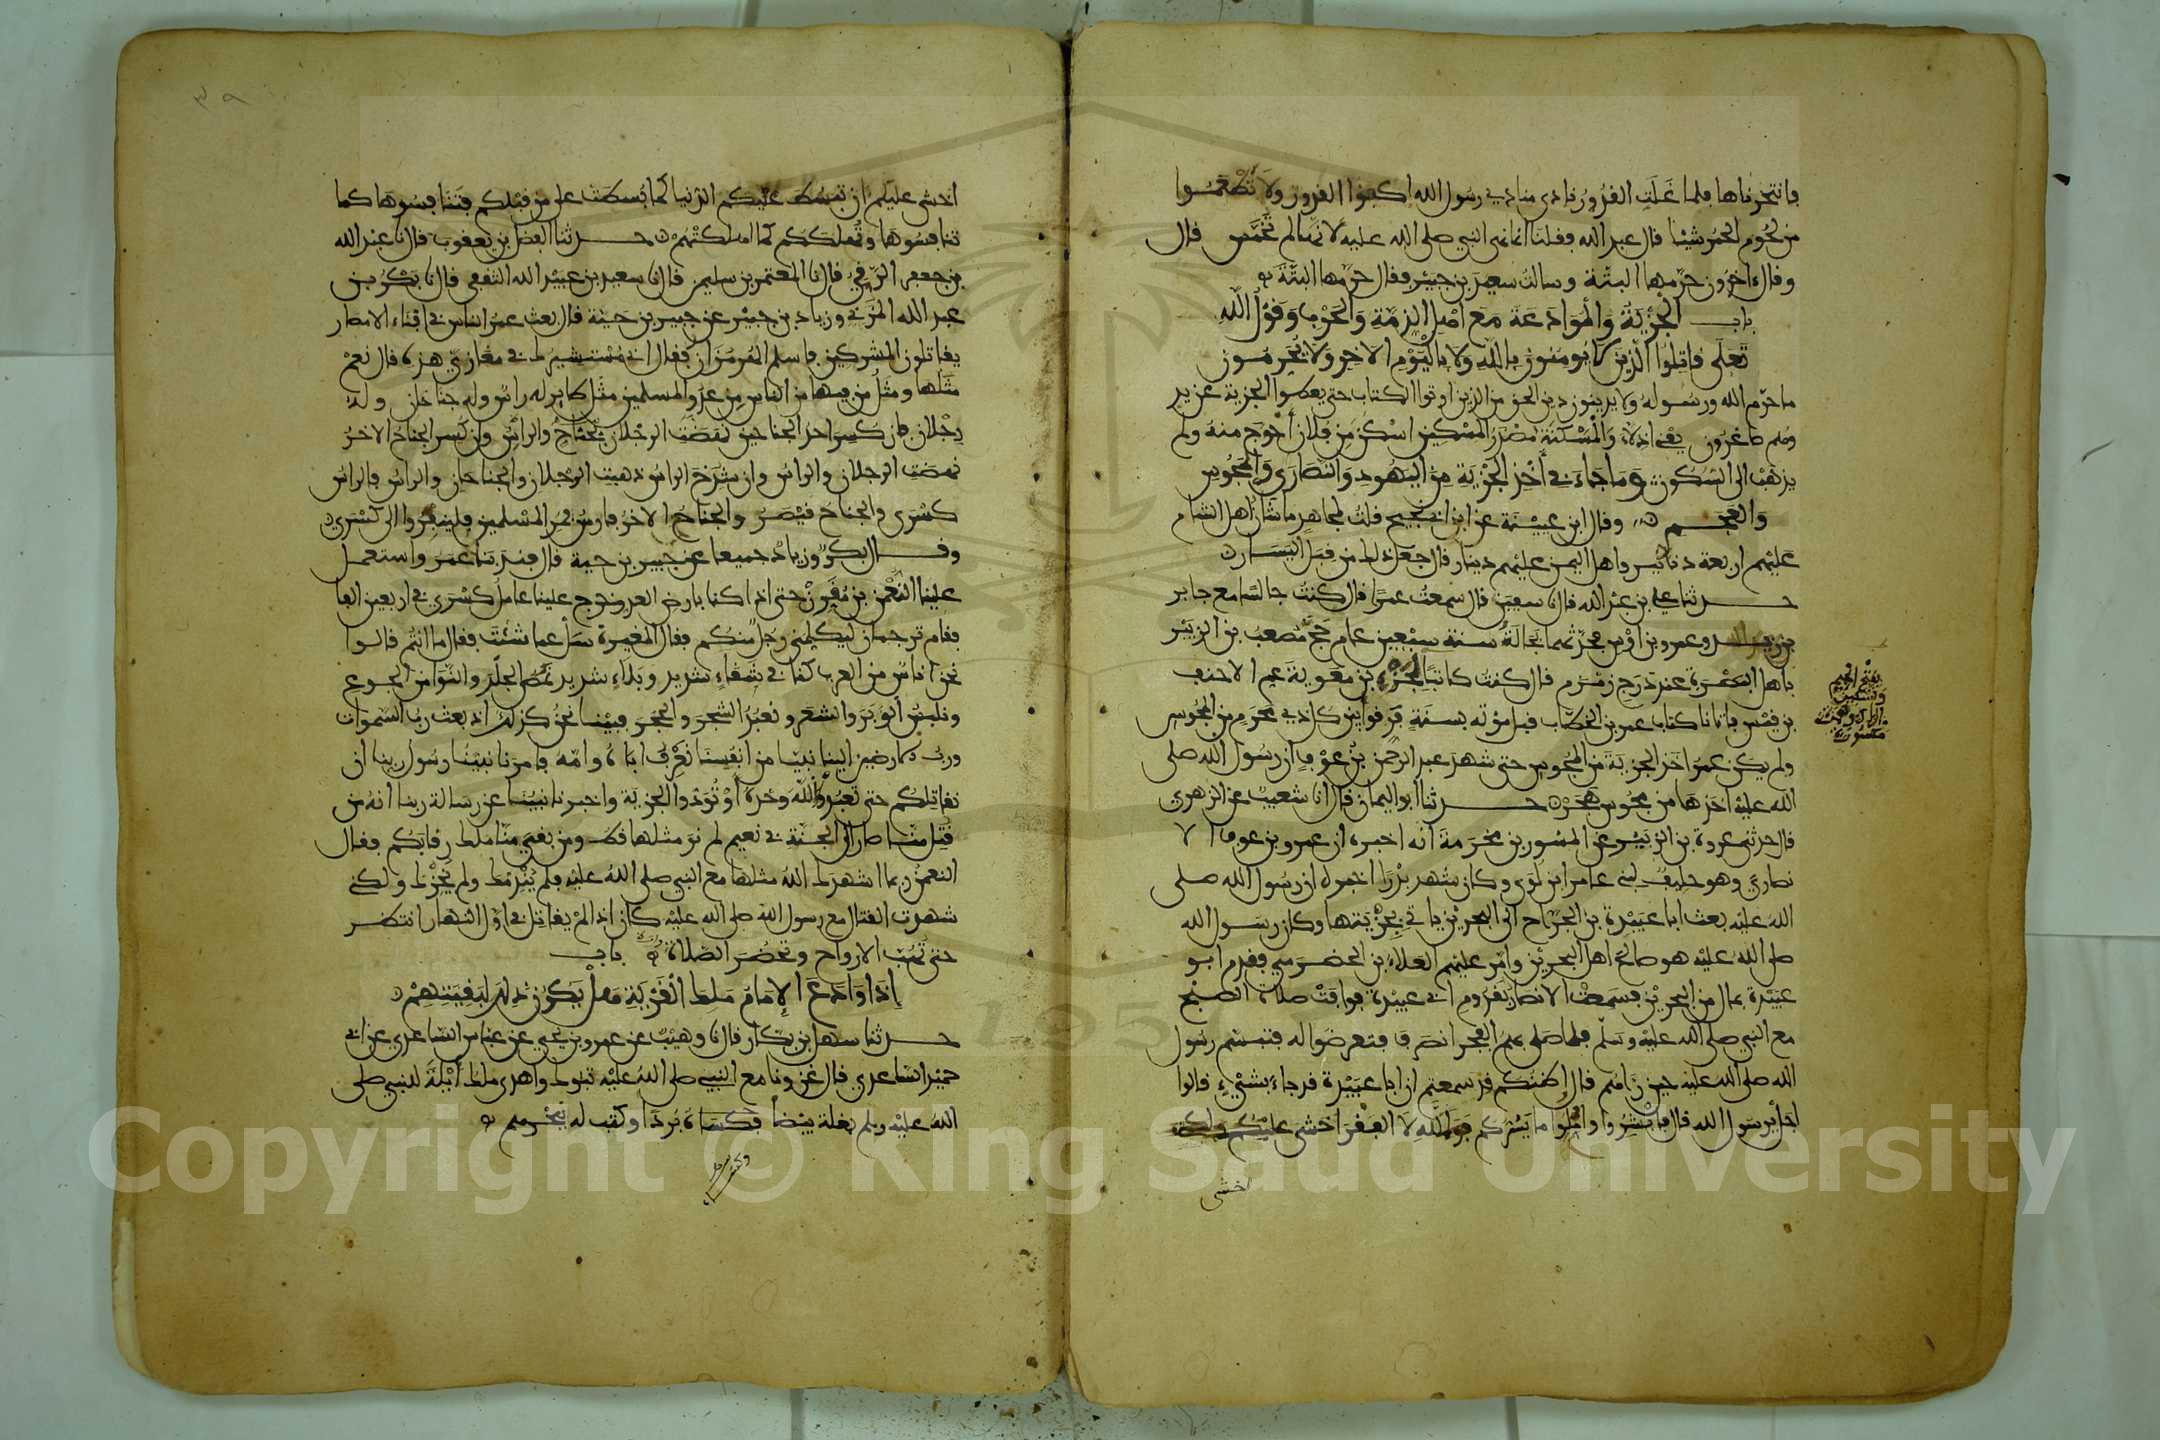 فانتحرناها فلما غلت القدور نادى منادي رسول الله اكفئوا القدور ولا تطعموا
من لحوم الحمر شيئا قال عبد الله فقلنا انما نهى النبي صلى الله عليه لانها لم تخمس قال
وقال اخرون حرمها البتة وسالت سعيد بن جبير فقال حرمها البتة
باب الجزية والموادعة مع اهل الذمة والحرب وقول الله
تعلى قاتلوا الذين لا يومنون بالله ولا باليوم الاخر ولا يحرمون
ما حرم الله ورسوله ولا يدينون دين الحق من الذين اوتوا الكتاب حتى يعطوا الجزية عن يد
وهم صاغرون يعني اذلاء والمسكنة مصدر المسكين اسكن من فلان أحوج منه ولم
يذهب الى السكون وما جاء في أخذ الجزية من اليهود والنصارى والمجوس
والعجم وقال ابن عيينة عن ابن ابي نجيح قلت لمجاهد ما شان اهل الشام
عليهم اربعة دنانير واهل اليمن عليهم دينار قال جعل ذلك من قبل اليسار
حدثنا علي بن عبد الله قال نا سفين قال سمعت عمرا قال كنت جالسا مع جابر
بن زيد وعمرو بن اوس فحدثهما بجالة سنة سبعين عام حج مصعب بن الزبير
باهل البصرة عند درج زمزم قال كنت كاتبا لجزء بن معوية عم الاحنف
بفتح الجيم
بن قيس فاتانا كتاب عمر بن الخطاب قبل موته بسنة فرقوا بين كل ذي محرم من المجوس
ولم يكن عمر اخذ الجزية من المجوس حتى شهد عبد الرحمن بن عوف ان رسول الله صلى
الله عليه اخذها من مجوس هجر حدثنا ابو اليمان قال انا شعيب عن الزهري
قال حدثني عروة بن الزبير عن المسور بن مخرمة انه اخبره ان عمرو بن عوف الا
نصاري وهو حليف لبني عامر ابن لؤي وكان شهد بدرا اخبره ان رسول الله صلى
الله عليه بعث ابا عبيدة بن الجراح الى البحرين ياتي بجزيتها وكان رسول الله
صلى الله عليه هو صالح اهل البحرين وامر عليهم العلاء بن الحضرمي فقدم ابو
عبيدة بمال من البحرين فسمعت الانصار بقدوم ابي عبيدة فوافت صلاة الصبح
مع النبي صلى الله عليه وسلم فلما صلى بهم الفجر انصرف فتعرضوا له فتبسم رسول
الله صلى الله عليه حين رآهم قال اظنكم قد سمعتم ان ابا عبيدة قد جاء بشيء قالوا
اجل يا رسول الله قال فابشروا واملوا ما يسركم فوالله لا الفقر اخشى عليكم ولكن
اخشى
٣٩
اخشى عليكم ان تبسط عليكم الدنيا كما بسطت على من قبلكم فتنافسوها كما
تنافسوها وتهلككم كما اهلكتهم حدثنا الفضل بن يعقوب قال نا عبد الله
بن جعفر الرقي قال نا المعتمر بن سليمن قال نا سعيد بن عبيد الله الثقفي قال نا بكر بن
عبد الله المزني وزياد بن جبير عن جبير بن حية قال بعث عمر الناس في افناء الامصار
يقاتلون المشركين فاسلم الهرمزان فقال اني مستشيرك في مغازي هذه قال نعم
مثلها ومثل من فيها من الناس من عدو المسلمين مثل طاير له راس وله جناحان وله
رجلان فان كسر احد الجناحين نهضت الرجلان بجناح والراس وان كسر الجناح الاخر
نهضت الرجلان والراس وان شدخ الراس ذهبت الرجلان والجناحان والراس فالراس
كسرى والجناح قيصر والجناح الاخر فارس فمر المسلمين فلينفروا الى كسرى
وقال بكر وزياد جميعا عن جبير بن حية قال فندبنا عمر واستعمل
علينا النعمن بن مقرن حتى اذا كنا بارض العدو خرج علينا عامل كسرى في اربعين الفا
فقام ترجمان ليكلمني رجل منكم فقال المغيرة سل عما شئت فقال ما انتم قالوا
نحن اناس من العرب كنا في شقاء شديد وبلاء شديد نمص الجلد والنوا من الجوع
ونلبس الوبر والشعر ونعبد الشجر والحجر فبينا نحن كذلك اذ بعث رب السموات
ورب الارضين الينا نبيا من انفسنا نعرف اباه وامه فامرنا نبينا رسول ربنا ان
نقاتلكم حتى تعبدوا الله وحده أو تؤدوا الجزية واخبرنا نبينا عن رسالة ربنا انه من
قتل منا صار الى الجنة في نعيم لم ير مثلها قط ومن بقي منا ملك رقابكم فقال
النعمن ربما اشهدك الله مثلها مع النبي صلى الله عليه فلم يندمك ولم يخزك ولكني
شهدت القتال مع رسول الله صلى الله عليه كان اذا لم يقاتل في اول النهار انتظر
حتى تهب الارواح وتحضر الصلاة باب
إذا وادع الإمام ملك القرية هل يكون ذلك لبقيتهم
حدثنا سهل بن بكار قال نا وهيب عن عمرو بن يحيى عن عباس الساعدي عن ابي
حميد الساعدي قال غزونا مع النبي صلى الله عليه تبوك واهدى ملك أيلة للنبي صلى
الله عليه وسلم بغلة بيضا فكساه بردا وكتب له ببحرهم